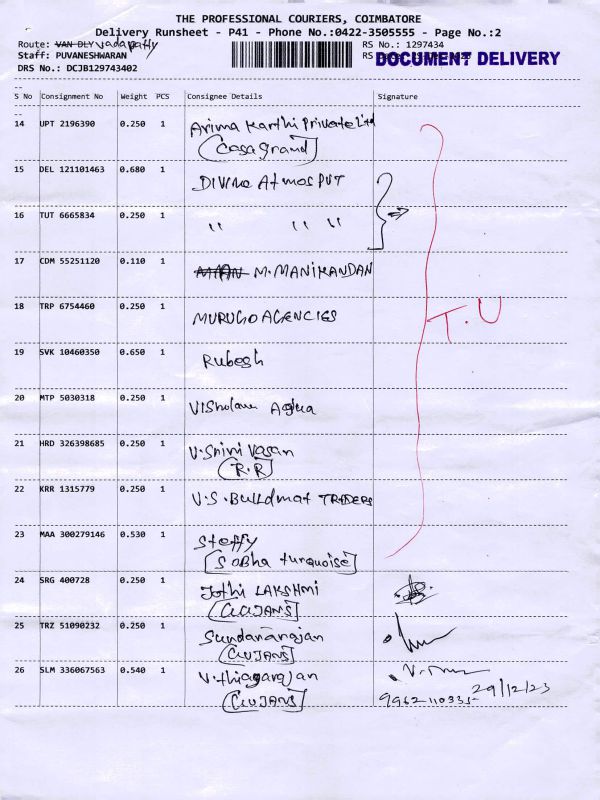 THE PROFESSIONAL COURIERS, COIMBATORE
Delivery Runsheet - P41 - Phone No.:0422-3505555 - Page No.:2
Route: VAN DLY vadapatty
RS No.: 1297434
Staff: PUVANESHWARAN
RS
DOCUMENT DELIVERY
DRS No.: DCJB129743402
S No Consignment No Weight PCS Consignee Details Signature
14 UPT 2196390 0.250 1 Arima Karthi Private Ltd
(Casagrand)
15 DEL 121101463 0.680 1 Divine Atmos PVT
16 TUT 6665834 0.250 1 " " "
17 CDM 55251120 0.110 1 M.MANIKANDAN
18 TRP 6754460 0.250 1 MURUGO AGENCIES
T.U
19 SVK 10460350 0.650 1 Rubesh
20 MTP 5030318 0.250 1
21 HRD 326398685 0.250 1 V.Srinivasan
(R.R)
22 KRR 1315779 0.250 1 V.S.Buildmat TRADERS
23 MAA 300279146 0.530 1 Steffy
(Sobha turquoise)
24 SRG 400728 0.250 1 Jothi LAKSHMI
25 TRZ 51090232 0.250 1 Sundararajan
26 SLM 336067563 0.540 1 V.thiagarajan
29/12/23
9962110335